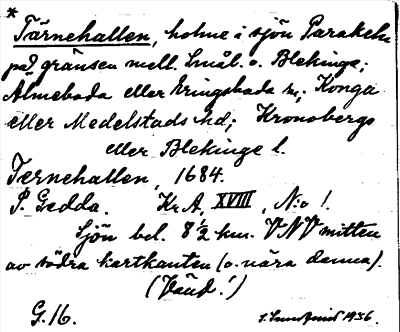 *
Tärnehallen, holme i sjön Paraken
på gränsen mell. Smål. o. Blekinge;
Älmeboda eller Eringsboda sn; Konga
eller Medelstads hd; Kronobergs
eller Blekinge l.
Ternehallen, 1684.
P. Gedda. Kr.A, XVIII, N:o 1.
Sjön bel. 8 1/2 km. VNV mitten
av södra kartkanten (o. nära denna).
(Vänd!)
G. 16. 1936.